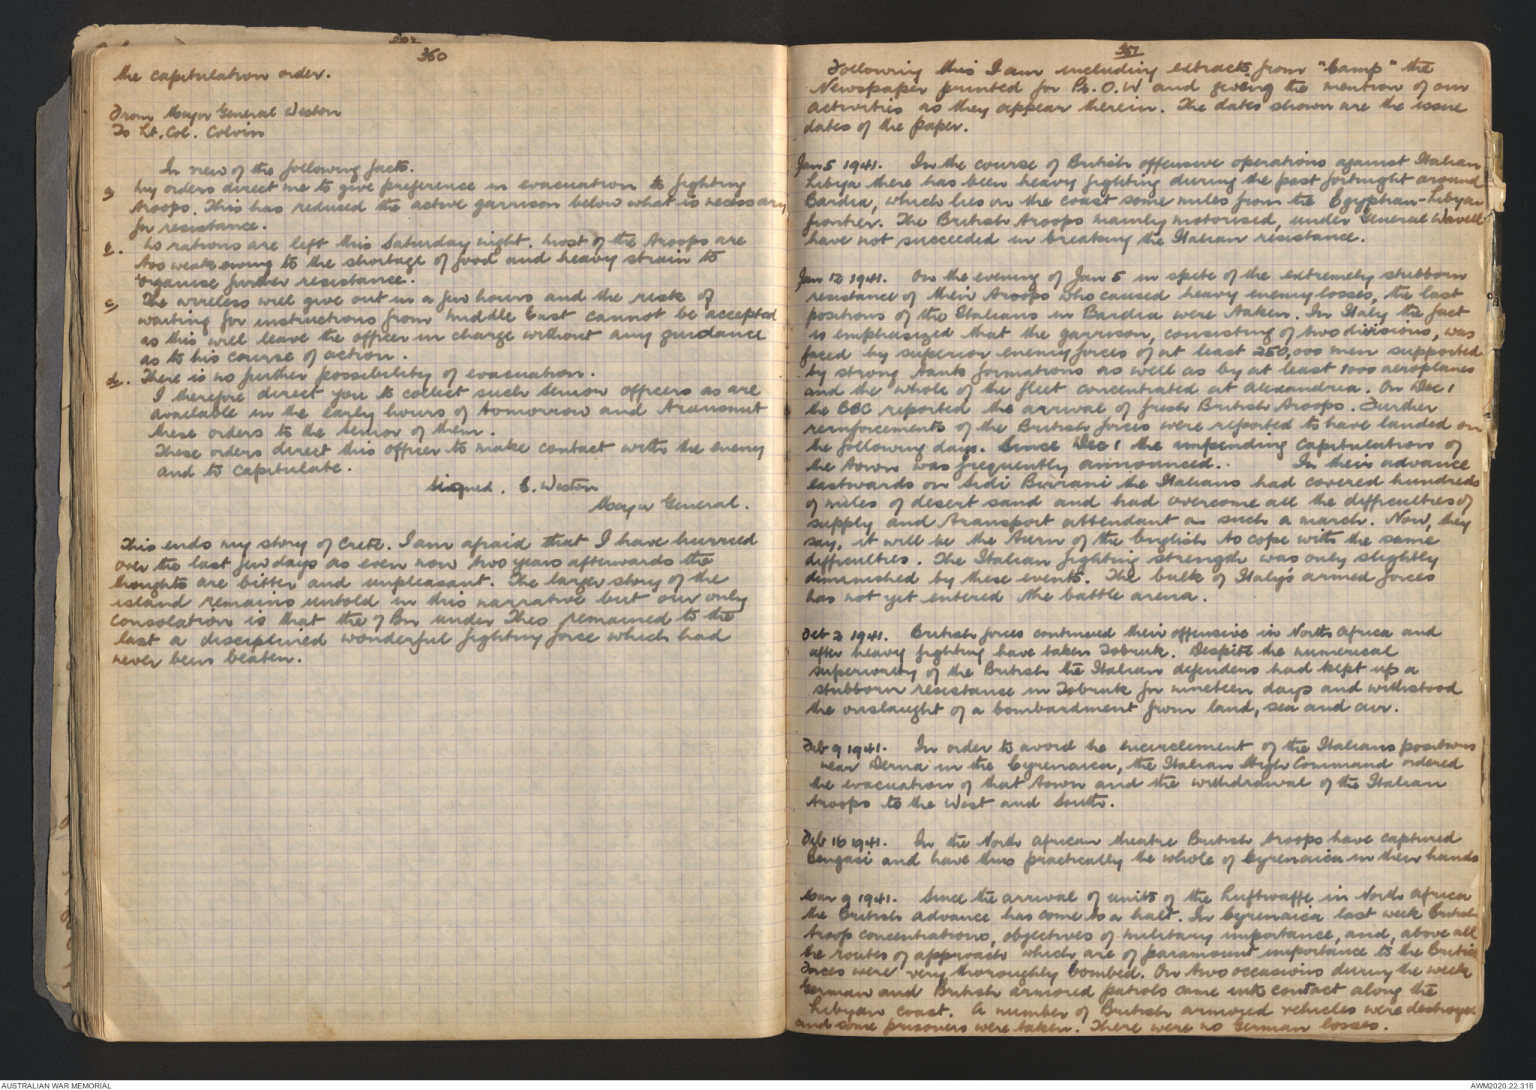 360
the capitulation order.
From Major General Weston
To Lt. Col. Colvin
In view of the following facts.
a, My orders direct me to give preference in evacuation to fighting
troops. This has reduced the active garrison below what is necessary
for resistance.
b. No rations are left this Saturday night. Most of the troops are
too weak owing to the shortage of food and heavy strain to
organise further resistance.
c, The wireless will give out in a few hours and the risk of
waiting for instructions from Middle East cannot be accepted
as this will leave the officer in charge without any guidance
as to his course of action.
d. There is no further possibility of evacuation.
I therefore direct you to collect such senior officers as are
available in the early hours of tomorrow and transmit
these orders to the senior of them.
These orders direct this officer to make contact with the enemy
and to capitulate.
Signed. E. Weston
Major General.
This ends my story of Crete. I am afraid that I have hurried
over the last few days as even now two years afterwards the
thoughts are bitter and unpleasant. The larger story of the
island remains untold in this narrative but our only
consolation is that the 7 Bn under Theo remained to the
last a disciplined wonderful fighting force which had
never been beaten.
361
Following this I am including extracts from "Camp" the
Newspaper printed for Ps.O.W and giving the mention of our
activities as they appear therein. The dates shown are the issue
dates of the paper.
Jan 5 1941. In the course of British offensive operations against Italian
Libya there has been heavy fighting during the past fortnight around
Bardia, which lies on the coast some miles from the Egyptian-Libyan
frontier. The British troops mainly motorised, under General Wavell
have not succeeded in breaking the Italian resistance.
Jan 12 1941. On the evening of Jan 5 in spite of the extremely stubborn
resistance of their troops who caused heavy enemy losses, the last
positions of the Italians in Bardia were taken. In Italy the fact
is emphasized that the garrison, consisting of two divisions, was
faced by superior enemy forces of at least 250,000 men supported
by strong tank formations as well as by at least 1000 aeroplanes
and the whole of the fleet concentrated at Alexandria. On Dec 1
the BBC reported the arrival of fresh British troops. Further
reinforcements of the British forces were reported to have landed on
the following days. Since Dec 1 the impending capitulation of
the town was frequently announced. In their advance
eastwards on Sidi Birrani the Italians had covered hundreds
of miles of desert sand and had overcome all the difficulties of
supply and transport attendant on such a march. Now, they
say, it will be the turn of the English to cope with the same
difficulties. The Italian fighting strength was only slightly
diminished by these events. The bulk of Italy's armed forces
has not yet entered the battle arena.
Feb 2 1941. British forces continued their offensive in North Africa and
after heavy fighting have taken Tobruk. Despite the numerical
superiority of the British the Italian defenders had kept up a
stubborn resistance in Tobruk for nineteen days and withstood
the onslaught of a bombardment from land, sea and air.
Feb 9 1941. In order to avoid the encirclement of the Italians positions
near Derna in the Cyrenaica, the Italian High Command ordered
the evacuation of that town and the withdrawal of the Italian
troops to the West and South.
Feb 16 1941. In the North African theatre British troops have captured
Bengasi and have thus practically the whole of Cyrenaica in their hands
Mar 9 1941. Since the arrival of units of the Luftwaffe in North Africa
the British advance has come to a halt. In Cyrenaica last week British
troop concentrations, objectives of military importance, and, above all
the routes of approach which are of paramount importance to the British
Forces were very thoroughly bombed. On two occasions during the week
German and British armored patrols came into contact along the
Libyan coast. A number of British armored vehicles were destroyed
and some prisoners were taken. There were no German losses.
AUSTRALIAN WAR MEMORIAL
AWM2020.22.316